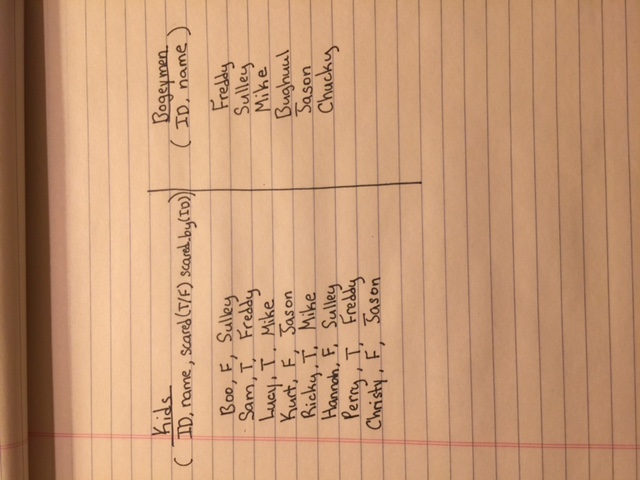 Kids
( ID, name, scared(T/F) scared.by(ID))
Boo, F, Sulley
Sam, T, Freddy
Lucy, T. Mike
Kurt, F, Jason
Ricky, T, Mike
Hannah, F, Sulley
Perry, T, Freddy
Christy, F, Jason
Bogeymen
( ID, name )
Freddy
Sulley
Mike
Bughuul
Jason
Chucky